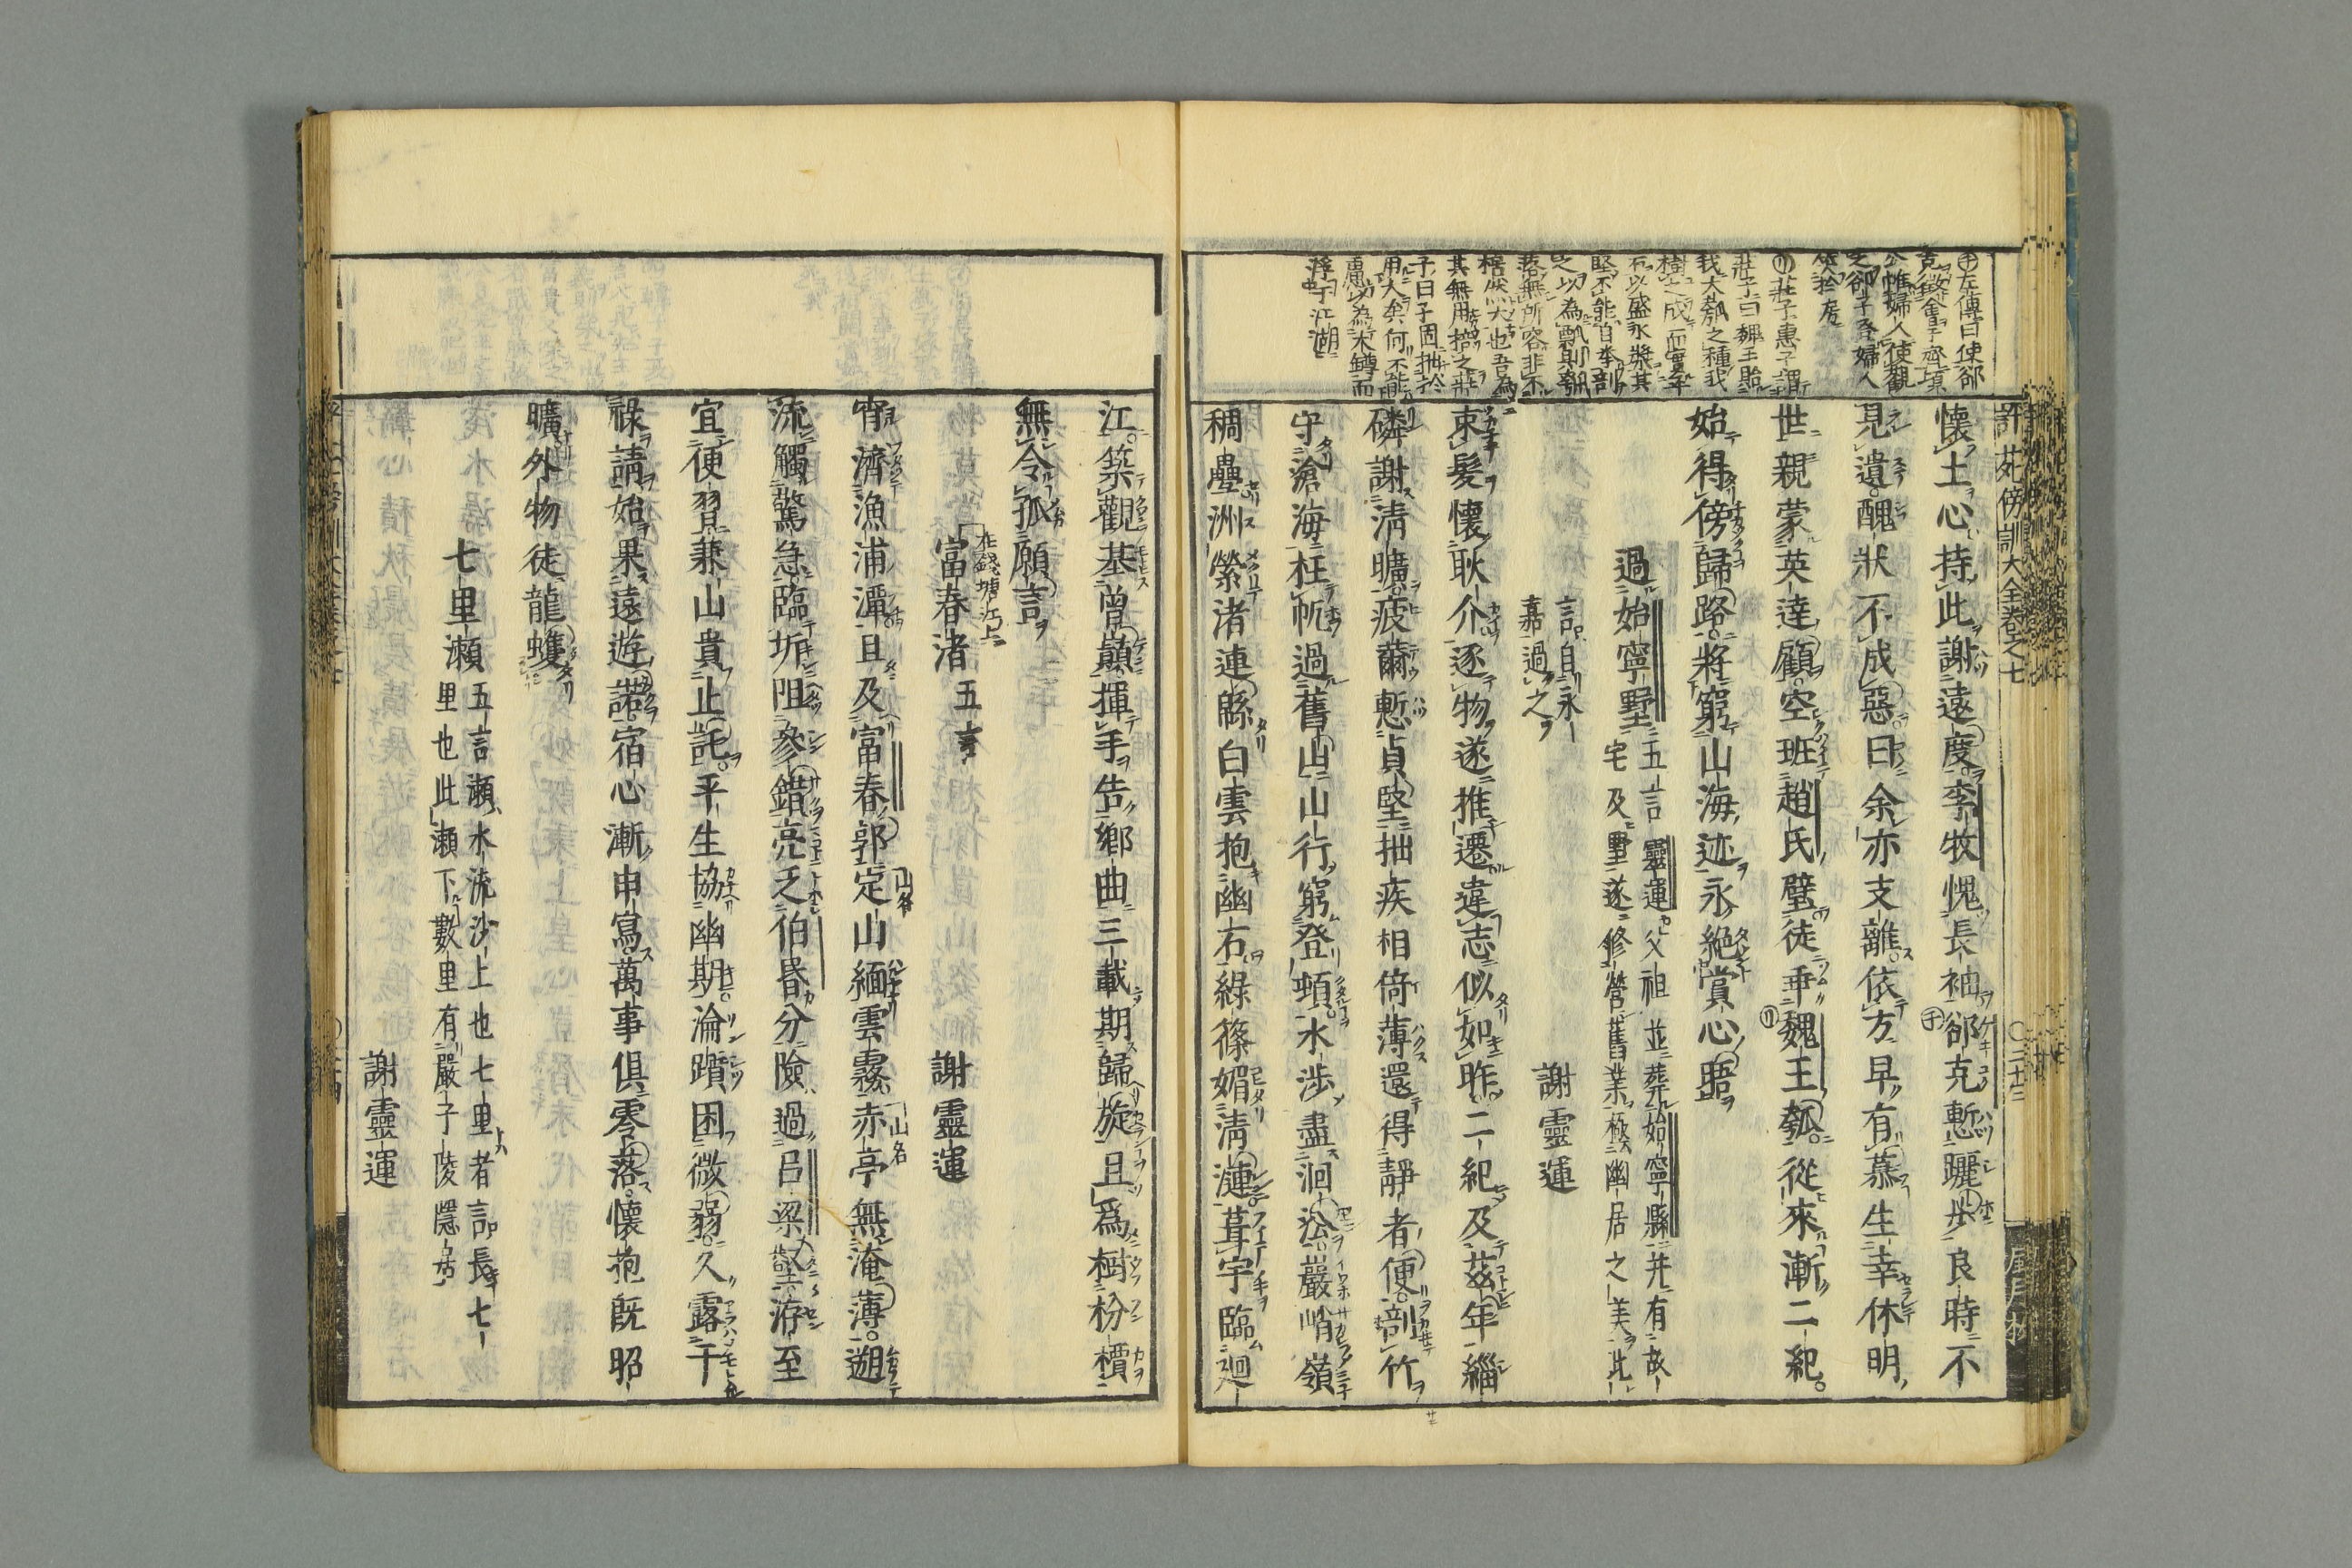 懷土心持此謝遠度李牧愧長袖郤克慙躧步良時不
見遺醜狀不成惡曰余亦支離依方早有慕生幸休明
世親蒙英達顧空班趙氏璧徒乖魏王瓠從來漸二紀
始得傍歸路將窮山海迹永絕賞心晤
過始寧墅
五言靈運父祖並葬始寧縣并有故
宅及墅遂修營舊業極幽居之美此
言自永
嘉過之
謝靈運
束髮懷耿介逐物遂推遷違志似如昨二紀及茲年緇
磷謝清曠疲薾慙貞堅拙疾相倚薄還得靜者便剖竹
守滄海枉帆過舊山山行窮登頓水涉盡洄㳂巖峭嶺
稠疊洲縈渚連緜白雲抱幽石綠篠媚清漣葺宇臨迴
江築觀基曾巔揮手告鄉曲三載期歸旋且爲樹枌檟
無令孤願言
富春渚五言
在錢塘江上
謝靈運
宵濟漁浦潭旦及富春郭定山緬雲霧赤亭無淹薄遡
流觸驚急臨圻阻參錯亮乏伯昏分險過呂梁壑洊至
宜便習兼山貴止託平生協幽期淪躓困微弱久露干
祿請始果遠遊諾宿心漸申寫萬事俱零落懷抱旣昭
曠外物徒龍蠖
七里瀨
五言瀨水流沙上也七里者言長七
里也此瀨下數里有嚴子陵隱居
謝靈運
左傳曰使郤
克徵會于齊頃
公帷婦人使觀
之郤子登婦人
笑於房
莊子惠子謂
莊子曰魏王貽
我大瓠之種我
樹之成而實五
石以盛水漿其
堅不能自舉剖
之以為瓢則瓠
落無所容非不
枵然大也吾為
其無用掊之莊
子曰子固拙於
用大矣何不
慮以為大罇而
浮于江湖
訓大全卷之七